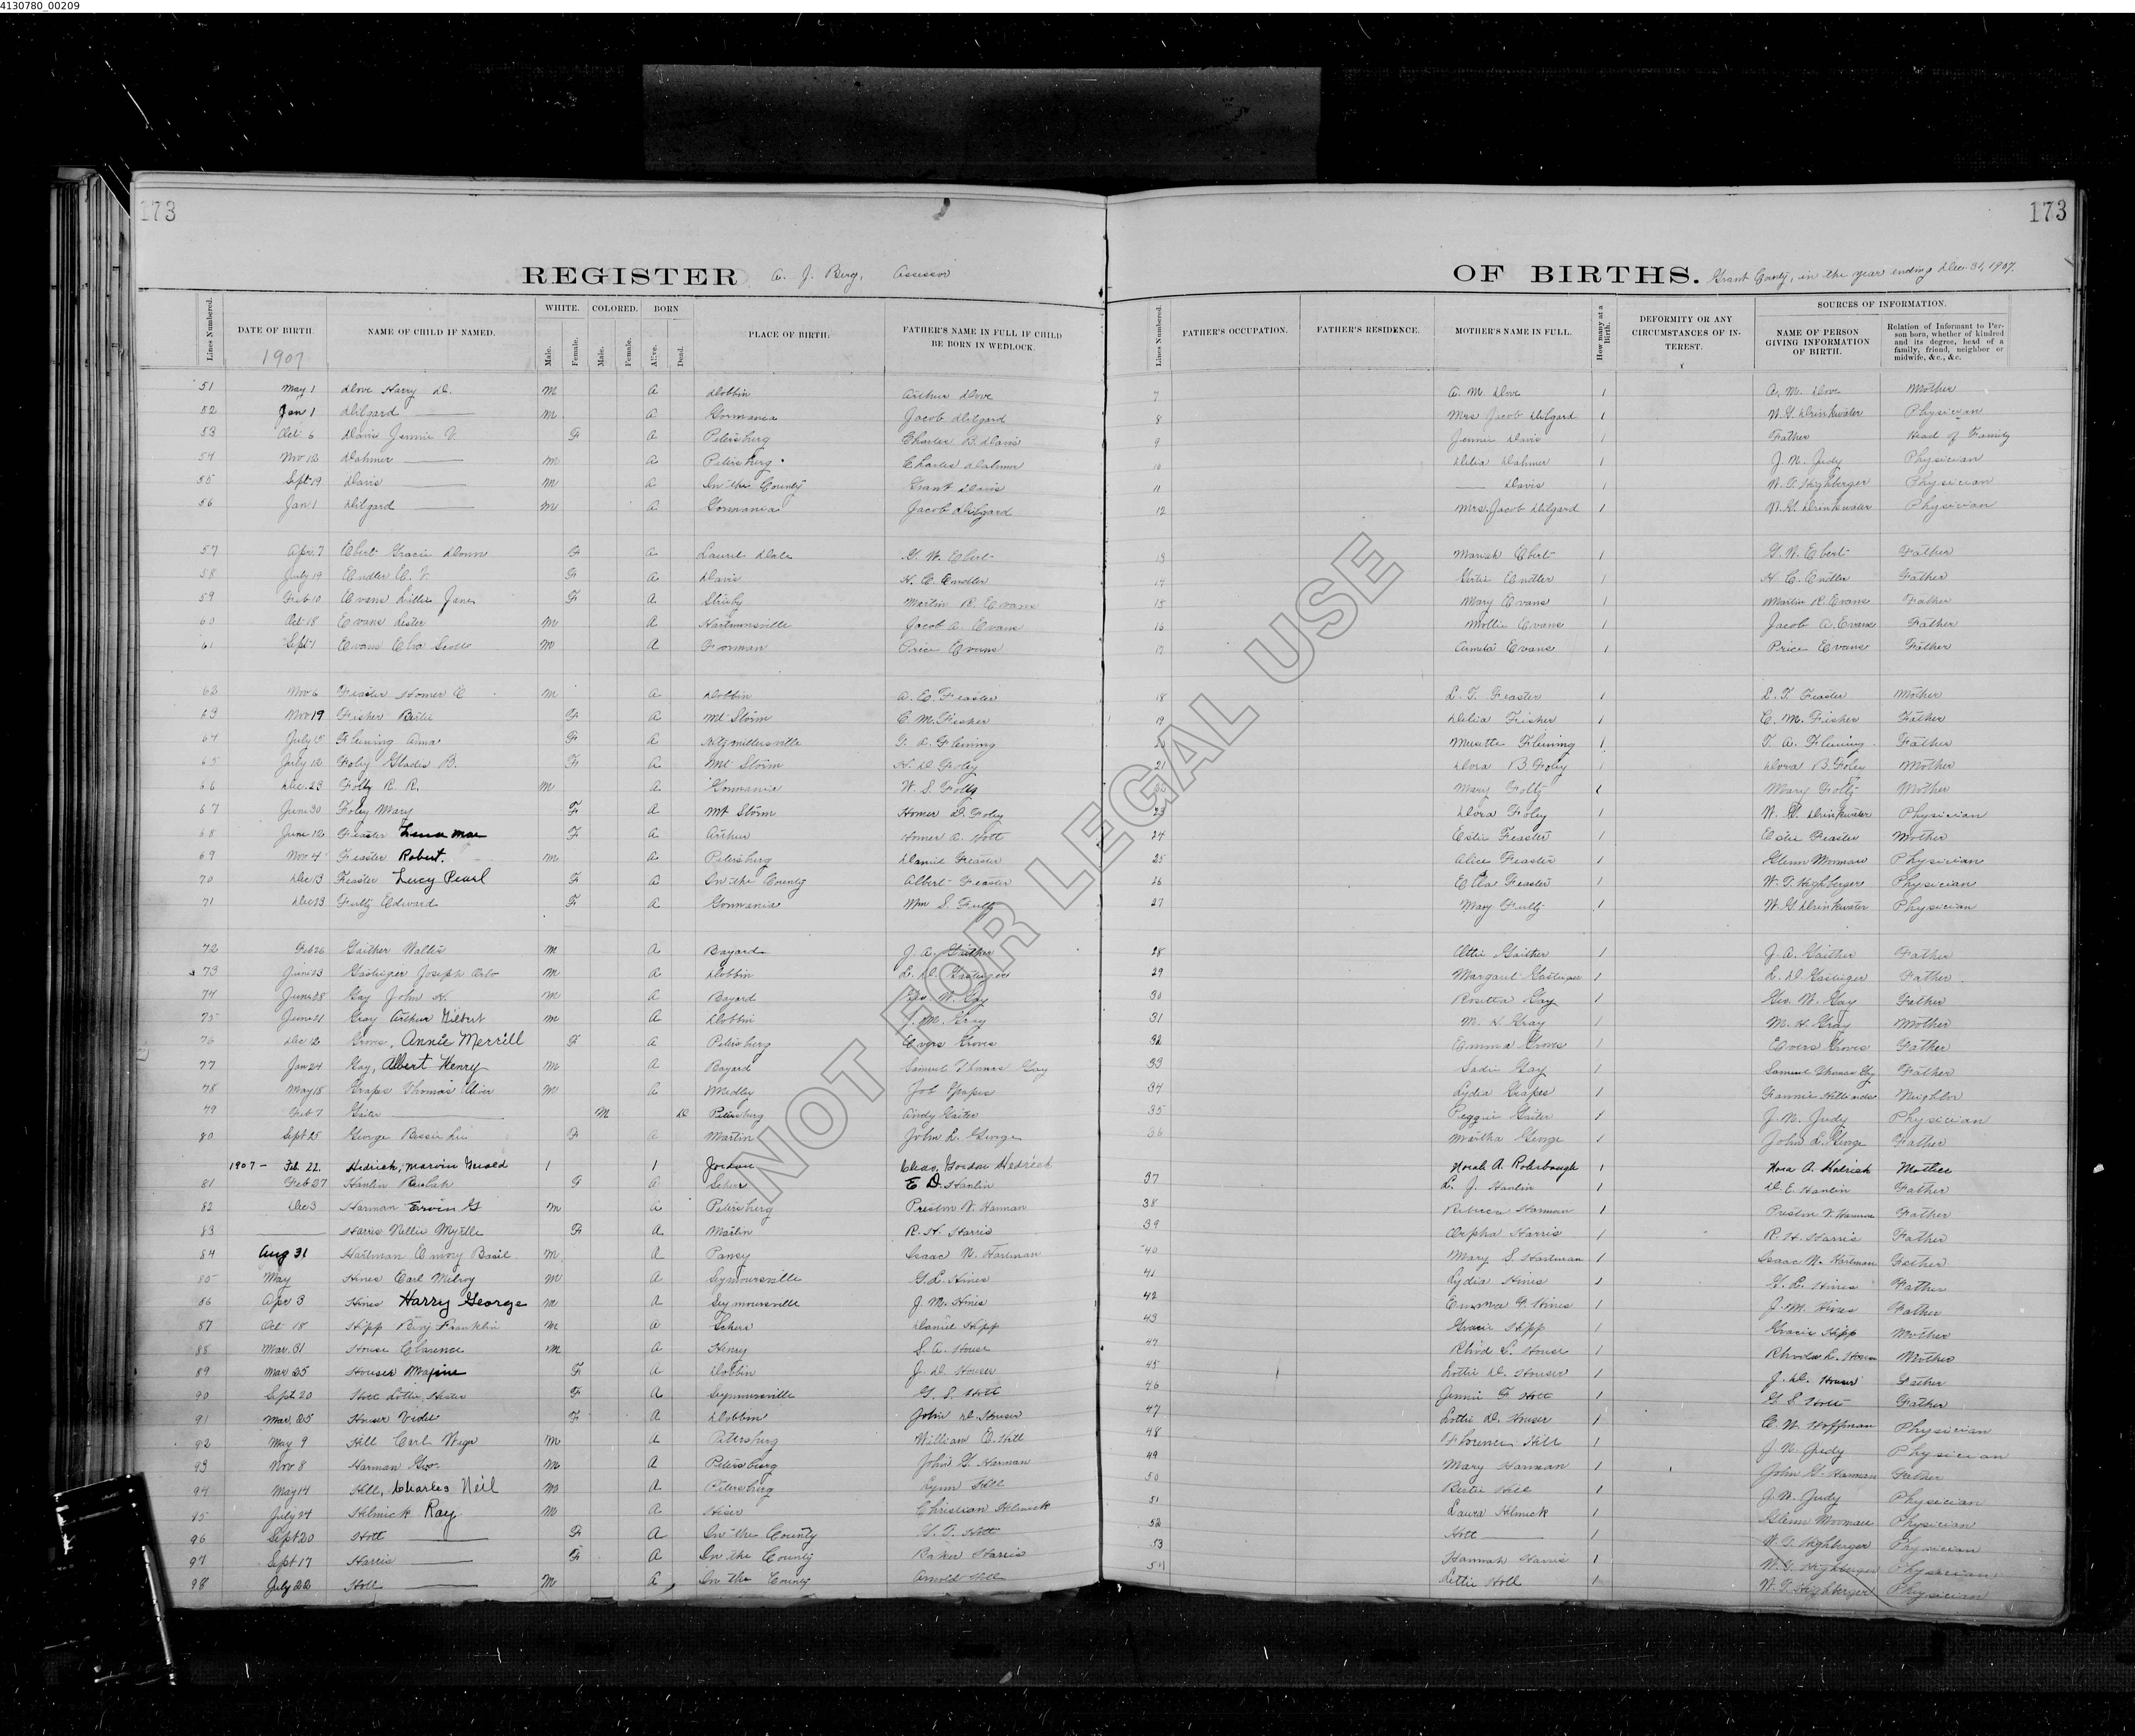 4130780_00209
173
173
REGISTER A. J. Berg, Assessor
OF BIRTHS. Grant County, in the year ending Dec. 31, 1907.
Lines Numbered. DATE OF BIRTH. NAME OF CHILD IF NAMED. WHITE. Male. Female. COLORED. Male. Female. BORN Alive. Dead. PLACE OF BIRTH. FATHER'S NAME IN FULL IF CHILD BE BORN IN WEDLOCK. Lines Numbered. FATHER'S OCCUPATION. FATHER'S RESIDENCE. MOTHER'S NAME IN FULL. How many at a Birth. DEFORMITY OR ANY CIRCUMSTANCES OF INTEREST. SOURCES OF INFORMATION. NAME OF PERSON GIVING INFORMATION OF BIRTH. Relation of Informant to Person born, whether of kindred and its degree, head of a family, friend, neighbor or midwife, &c., &c.
1907
51 May 1 Dove Harry D. M A Dobbin Arthur Dove 7 A. M. Dove 1 A. M. Dove Mother
52 Jan 1 Dilgard M A Gormania Jacob Dilgard 8 Mrs Jacob Dilgard 1 W. G. Drinkwater Physician
53 Oct 6 Davis Jennie V. F A Petersburg Charles B. Davis 9 Jennie Davis 1 Father Head of Family
54 Nov 12 Dahmer M A Petersburg Charles Dahmer 10 Delia Dahmer 1 J. N. Judy Physician
55 Sept 19 Davis M A In the County Grant Davis 11 Davis 1 W. T. Highberger Physician
56 Jan 1 Dilgard M A Gormania Jacob Dilgard 12 Mrs. Jacob Dilgard 1 W. G. Drinkwater Physician
57 Apr. 7 Ebert Gracie F A Laurel Dale G. W. Ebert 13 Mariah Ebert 1 G. W. Ebert Father
58 July 19 Endler E. V. F A Davis H. C. Endler 14 Gertie Endler 1 H. C. Endler Father
59 Feb 10 Evans Lillie Jane F A Streby Martin R. Evans 15 Mary Evans 1 Martin R. Evans Father
60 Oct 18 Evans Lester M A Hartmonsville Jacob A. Evans 16 Mollie Evans 1 Jacob A. Evans Father
61 Sept 1 Evans M A Forman Price Evans 17 Evans 1 Price Evans Father
62 Nov 6 Feaster Homer E M A Dobbin A. E. Feaster 18 L. T. Feaster 1 L. T. Feaster Mother
63 Nov 19 Fisher Bertie F A Mt Storm C. M. Fisher 19 Delia Fisher 1 C. M. Fisher Father
64 July 15 Fleming Anna F A Kitzmillersville T. A. Fleming 20 Musette Fleming 1 T. A. Fleming Father
65 July 12 Foley Gladis B. F A Mt Storm H. D. Foley 21 Dora B. Foley 1 Dora B. Foley Mother
66 Dec. 23 Foltz R. R. M A Gormania W. S. Foltz 22 Mary Foltz 1 Mary Foltz Mother
67 June 30 Foley Mary F A Mt Storm Homer D. Foley 23 Dora Foley 1 W. G. Drinkwater Physician
68 June 12 Feaster Lena Mae F A Arthur Homer A. Hott 24 Estie Feaster 1 Estie Feaster Mother
69 Nov 4 Feaster Robert. M A Petersburg Daniel Feaster 25 Alice Feaster 1 Glenn Moomau Physician
70 Dec 13 Feaster Lucy Pearl F A In the County Albert Feaster 26 Ella Feaster 1 W. T. Highberger Physician
71 Dec 13 Fultz Edward F A Gormania Wm S. Fultz 27 Mary Fultz 1 W. G. Drinkwater Physician
72 Feb 26 Gaither Walter M A Bayard J. A. Gaither 28 Attie Gaither 1 J. A. Gaither Father
73 June 23 Gastiger Joseph M A Dobbin L. D. Gastiger 29 Margaret Gastiger 1 L. D. Gastiger Father
74 June 28 Gay John H. M A Bayard Geo. W. Gay 30 Rosetta Gay 1 Geo. W. Gay Father
75 June 21 Gray Arthur Gilbert M A Dobbin M. Gray 31 M. H. Gray 1 M. H. Gray Mother
76 Dec 12 Groves, Annie Merrill F A Petersburg Evers Groves 32 Emma Groves 1 Evers Groves Father
77 Jan 24 Gay, Albert Henry M A Bayard Samuel Thomas Gay 33 Sadie Gay 1 Samuel Thomas Gay Father
78 May 18 Grapes Thomas Oliver M A Medley Job Grapes 34 Lydia Grapes 1 Fannie Neighbor
79 Feb 7 Gaiter M D Petersburg Andy Gaiter 35 Peggie Gaiter 1 J. N. Judy Physician
80 Sept 25 George Bessie Lee F A Martin John L. George 36 Martha George 1 John L. George Father
1907 - Feb. 22. Hedrick, Marvin Gerald 1 1 Jordan Chas. Gordon Hedrick Norah A. Rohrbaugh 1 Nora A. Hedrick Mother
81 Feb 27 Hanlin Beulah F A Scherr E. D. Hanlin 37 L. J. Hanlin 1 D. E. Hanlin Father
82 Dec 3 Harman Ervin G M A Petersburg Preston V. Harman 38 Rebecca Harman 1 Preston V. Harman Father
83 Harris Nellie Myrtle F A Martin R. H. Harris 39 Orpha Harris 1 R. H. Harris Father
84 Aug 31 Hartman Emory Basil M A Pansy Isaac N. Hartman 40 Mary S. Hartman 1 Isaac N. Hartman Father
85 May Hines Carl Milroy M A Seymoursville G. L. Hines 41 Lydia Hines 1 G. L. Hines Father
86 Apr 3 Hines Harry George M A Seymoursville J. M. Hines 42 Emma F. Hines 1 J. M. Hines Father
87 Oct 18 Hipp Benj Franklin M A Scherr Daniel Hipp 43 Gracie Hipp 1 Gracie Hipp Mother
88 Mar. 31 House Clarence M A Henry S. A. House 44 Rhoda L. House 1 Rhoda L. House Mother
89 Mar 25 Houser Maxine F A Dobbin J. D. Houser 45 Lottie D. Houser 1 J. D. Houser Father
90 Sept 20 Hott Lottie Hester F A Seymoursville G. S. Hott 46 Jennie F. Hott 1 G. S. Hott Father
91 Mar. 25 Houser F A Dobbin John D. Houser 47 Lottie D. Houser 1 C. W. Hoffman Physician
92 May 9 Hill Carl M A Petersburg William E. Hill 48 Florence Hill 1 J. N. Judy Physician
93 Nov 8 Harman Geo. M A Petersburg John G. Harman 49 Mary Harman 1 John G. Harman Father
94 May 14 Hill, Charles Neil M A Petersburg Lynn Hill 50 Bertie Hill 1 J. N. Judy Physician
95 July 24 Helmick Ray M A Hiser Christian Helmick 51 Laura Helmick 1 Glenn Moomau Physician
96 Sept 20 Hott F A In the County G. T. Hott 52 Hott 1 W. T. Highberger Physician
97 Sept 17 Harris F A In the County Baker Harris 53 Hannah Harris 1 W. T. Highberger Physician
98 July 22 Holl M A In the County Arnold Holl 54 Lettie Holl 1 W. T. Highberger Physician
NOT FOR LEGAL USE